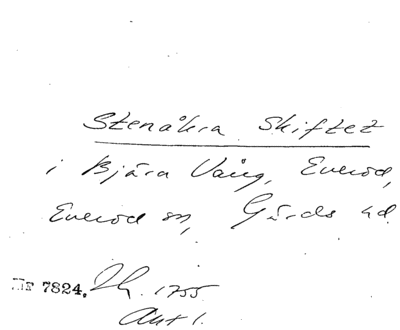 Stenåkra Skiftet
i Bjära Vång, Everöd,
Everöd sn, Gärds hd.
HF 7824. 1755.
Akt 1.